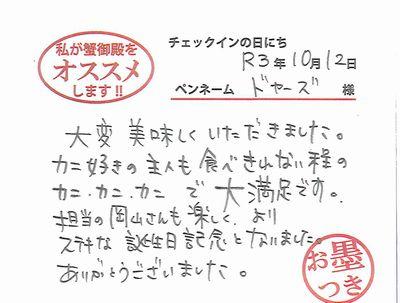 私が蟹御殿を
オススメ
します!!
チェックインの日にち
R3年10月12日
ペンネーム ドヤーズ 様
大変美味しくいただきました。
カニ好きの主人も食べきれない程の
カニ・カニ・カニで大満足です。
担当の岡山さんも楽しく、より
ステキな誕生日記念となりました。
ありがとうございました。
お墨
つき